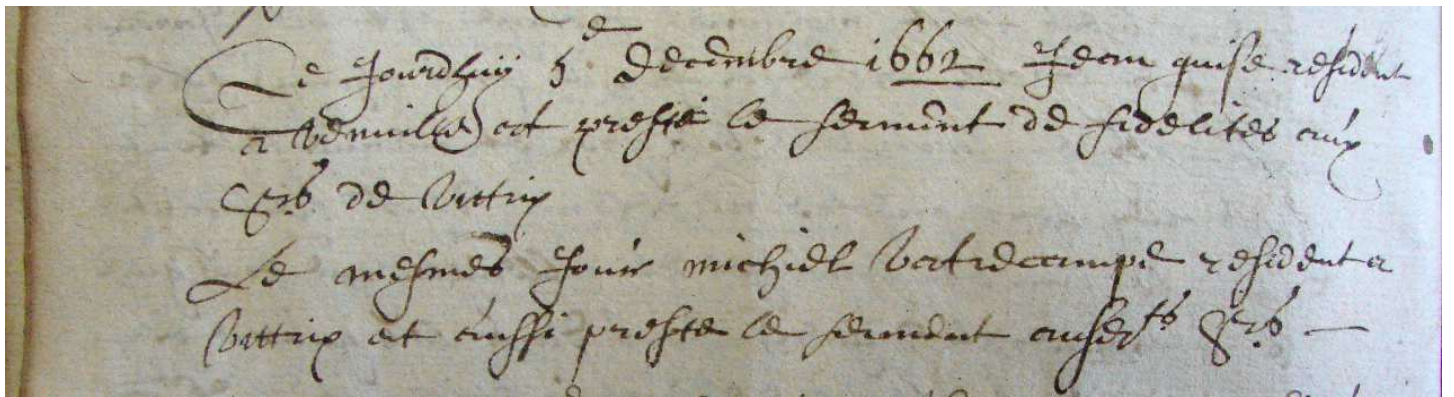 Ce Jourdhuy 5e decembre 1662 Jean guise resident
a at presté le serment de fidelites aux
Srs de Vottrix
Le mesmes Jour michiel Vatrecampe resident a
Vottrix at aussi preste le serment Srs